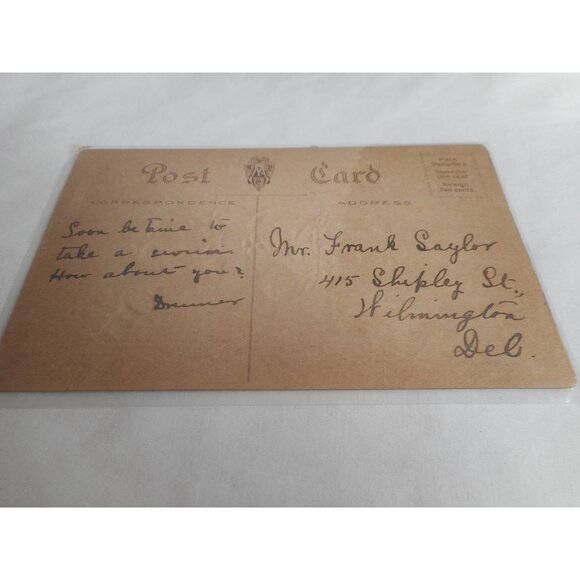 Post Card
CORRESPONDENCE
ADDRESS
Place
Stamp Here
Domestic
One cent
Foreign
Two cents
Soon be time to
take a swim.
How about you?
Mr. Frank Saylor
415 Shipley St.,
Wilmington
Del.